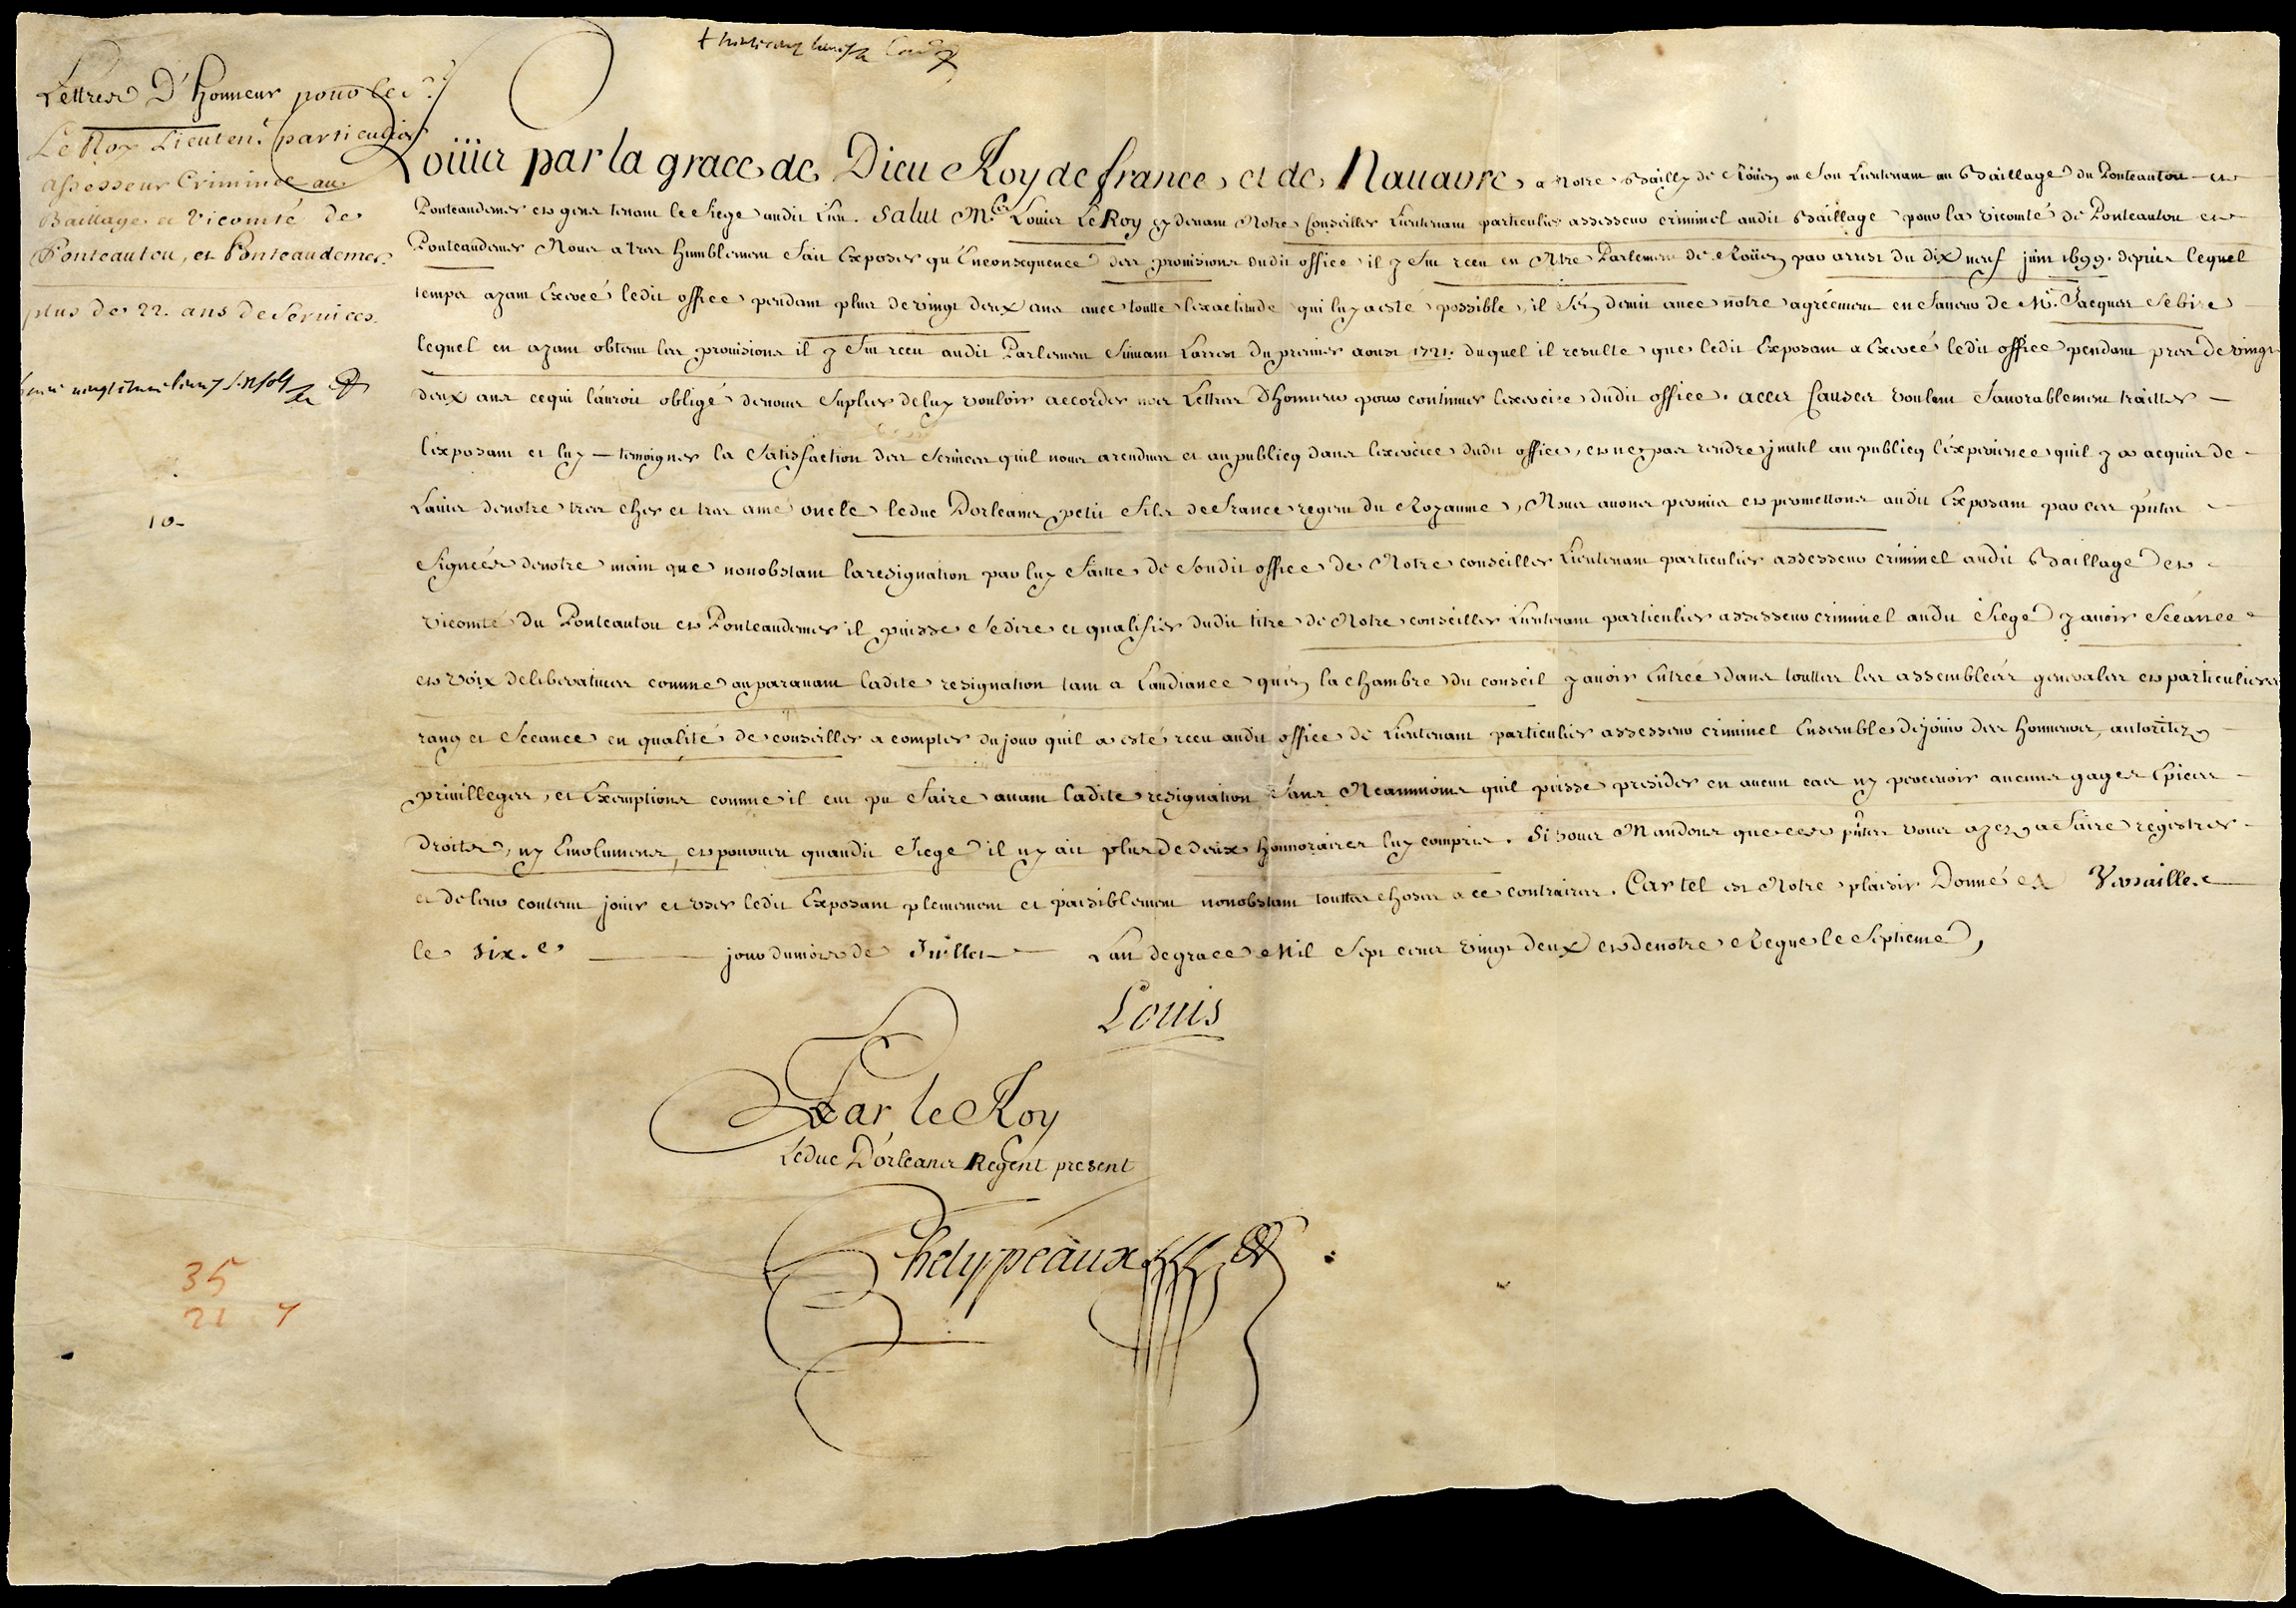 Lettres D'honneur pour le S.r
Le Roy Lieuten.t particulier
assesseur Criminel au
Baillage et Vicomté de
Ponteautou, et Ponteaudemer
plus de 22. ans de Services.
10-
35
21 7
Louis par la grace de Dieu Roy de france et de Nauarre, a Notre Bailly de Roüen ou son Lieutenant au Baillage du Ponteautou et
Ponteaudemer et gens tenant le Siege audit Lieu. Salut M.e Louis Le Roy cy deuant Notre Conseiller Lieutenant particulier assesseur criminel audit Baillage pour la vicomté de Ponteautou et
Ponteaudemer Nous a tres humblement fait Exposer qu'Enconsequence des prouisions dudit office il y fut receu en Ntre Parlement de Roüen par arrest du dix neuf juin 1699. depuis lequel
temps ayant Exercé ledit office pendant plus de vingt deux ans auec toutte l'exactitude qui luy a esté possible, il s'en demit auec nôtre agréement en faueur de M.e Jacques Sebire
lequel en ayant obtenu les prouisions il y fut receu audit Parlement suiuant L'arrest du premier aoust 1721. duquel il resulte que ledit Exposant a Exercé ledit office pendant pres de vingt
deux ans ce qui l'auroit obligé de nous suplier de luy vouloir accorder nos Lettres d'honneur pour continuer l'exercice dudit office. a ces Causes voulant fauorablement traitter
l'exposant et luy temoigner la Satisfaction des seruices quil nous a rendues et au publicq dans l'exercice dudit office, et ne pas rendre jnutil au publicq l'éxperience quil y a acquis de
L'auis de notre tres cher et tres amé oncle le duc Dorleans petit fils de france regent du Royaume, Nous auons permis et permettons audit Exposant par ces pñtes
Signées de notre main que nonobstant la resignation par luy faitte de sondit office de Notre conseiller Lieutenant particulier assesseur criminel audit Baillage et
vicomté du Ponteautou et Ponteaudemer il puisse se dire et qualifier dudit titre de Notre conseiller Lieutenant particulier assesseur criminel audit Siege y auoir Sceance
et voix deliberatiues comme auparauant ladite resignation tant a L'audiance qu'en la chambre du conseil y auoir Entrée dans touttes les assemblées generales et particulieres
rang et Sceance en qualité de conseiller a compter du jour quil a esté receu audit office de Lieutenant particulier assesseur criminel Ensemble de joüir des honneurs, autoritez
priuilleges, et Exemptions comme il eut pu faire auant ladite resignation sans Neanmoins quil puisse presider en aucun cas ny perceuoir aucuns gages Epices
Droits, ny Emolumens, et pourueu quaudit Siege il ny ait plus de deux honnoraires luy compris. Si vous Mandons que ces pñtes vous ayez a faire registrer
et de leur contenu jouir et vser ledit Exposant plainement et paisiblement nonobstant touttes choses a ce contraires. Car tel est Notre plaisir Donné A Versailles
le six.e jour du mois de Juillet L'an de grace Mil Sept cens vingt deux et de notre Regne le Septieme,
Louis
Par le Roy
Le duc D'orleans Regent present
Phelypeaux